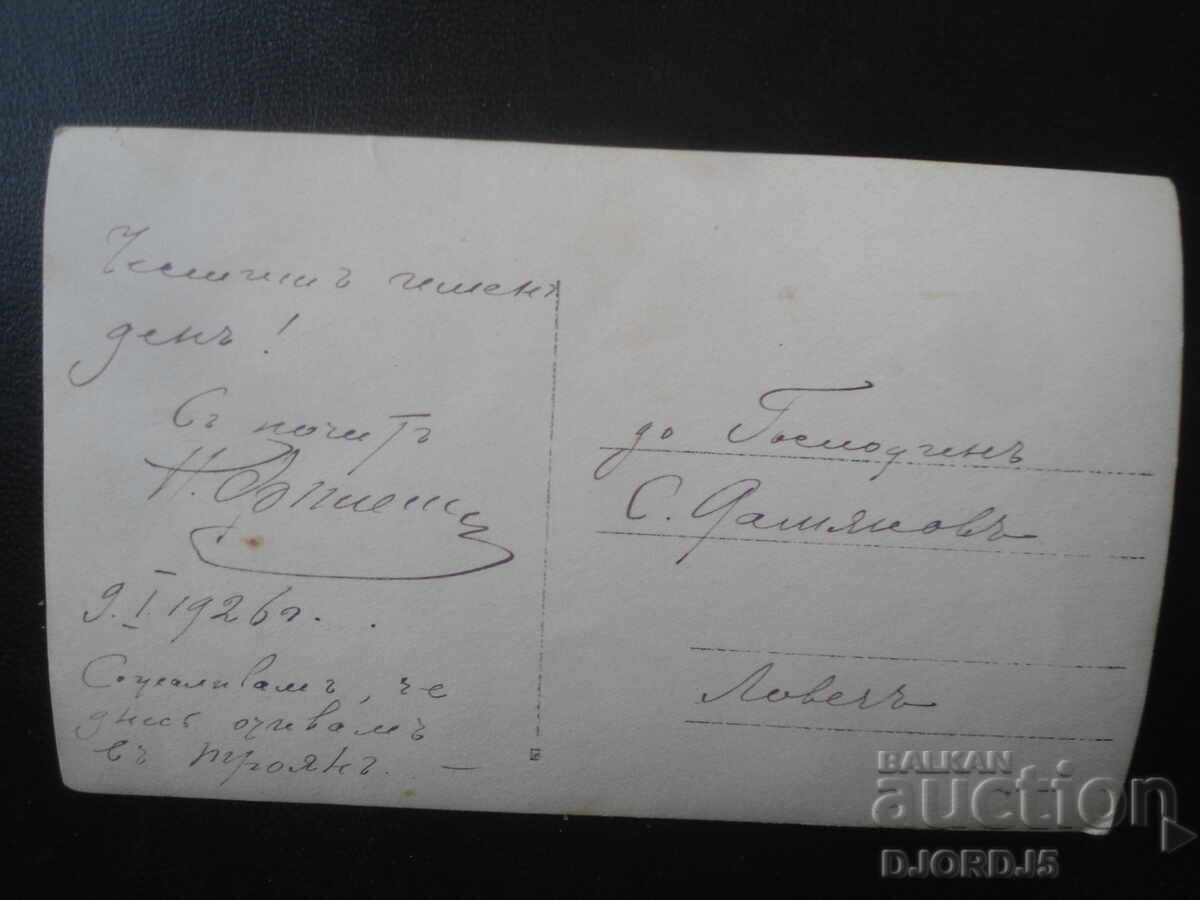 Честитъ именъ
день!
Съ почитъ
9. I. 1926 г.
Съжалявамъ, че
днесъ отивамъ
въ Троянъ. —
до Господинъ
С. Дамяновъ
Ловечъ
BALKAN
auction
DJORDJ5